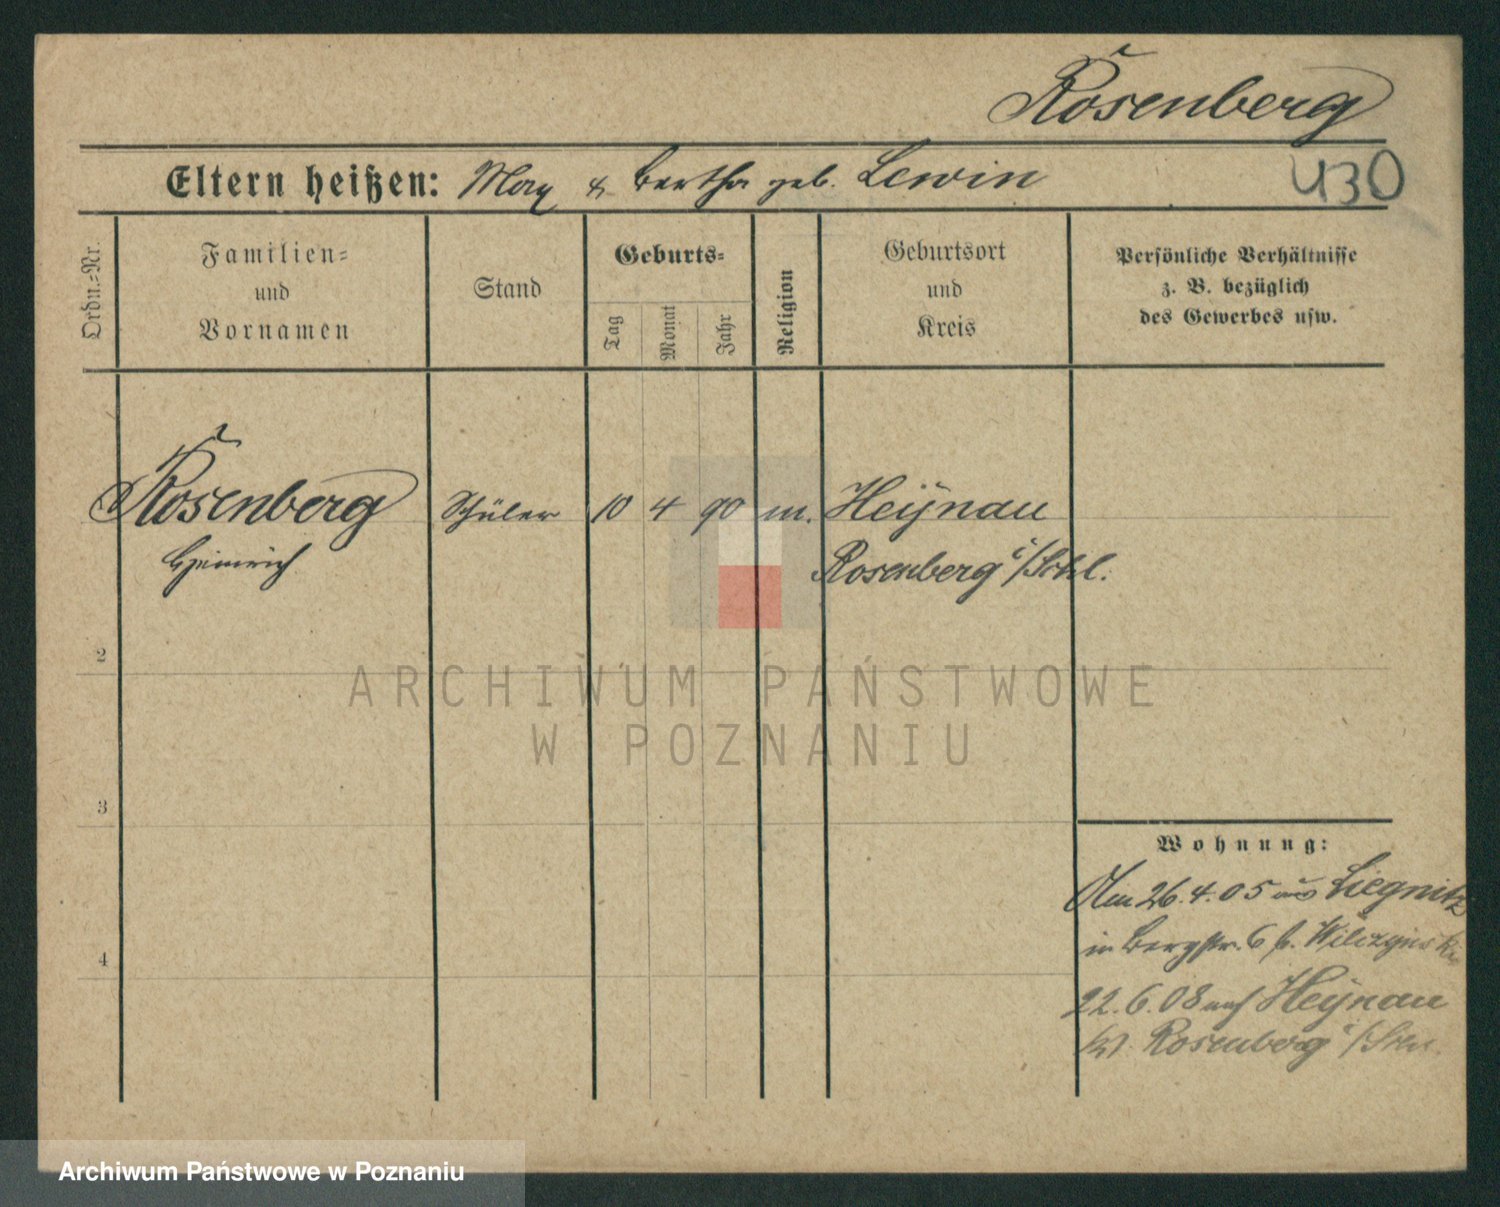 Rosenberg
Eltern heißen: Max & Bertha geb. Lewin
430
Ordn.-Nr.
Familien- und Vornamen
Stand
Geburts-
Tag
Monat
Jahr
Religion
Geburtsort und Kreis
Persönliche Verhältnisse
z. B. bezüglich
des Gewerbes usw.
Rosenberg Schüler 10 4 90 m. Heÿnau
Heinrich Rosenberg i/Schl.
2
ARCHIWUM PAŃSTWOWE
W POZNANIU
3
4
Wohnung:
Am 26.4.05 aus Liegnitz
in Bergstr. 6 b. Wilczynski
22.6.08 nach Heÿnau
Kr. Rosenberg i/Schl.
Archiwum Państwowe w Poznaniu